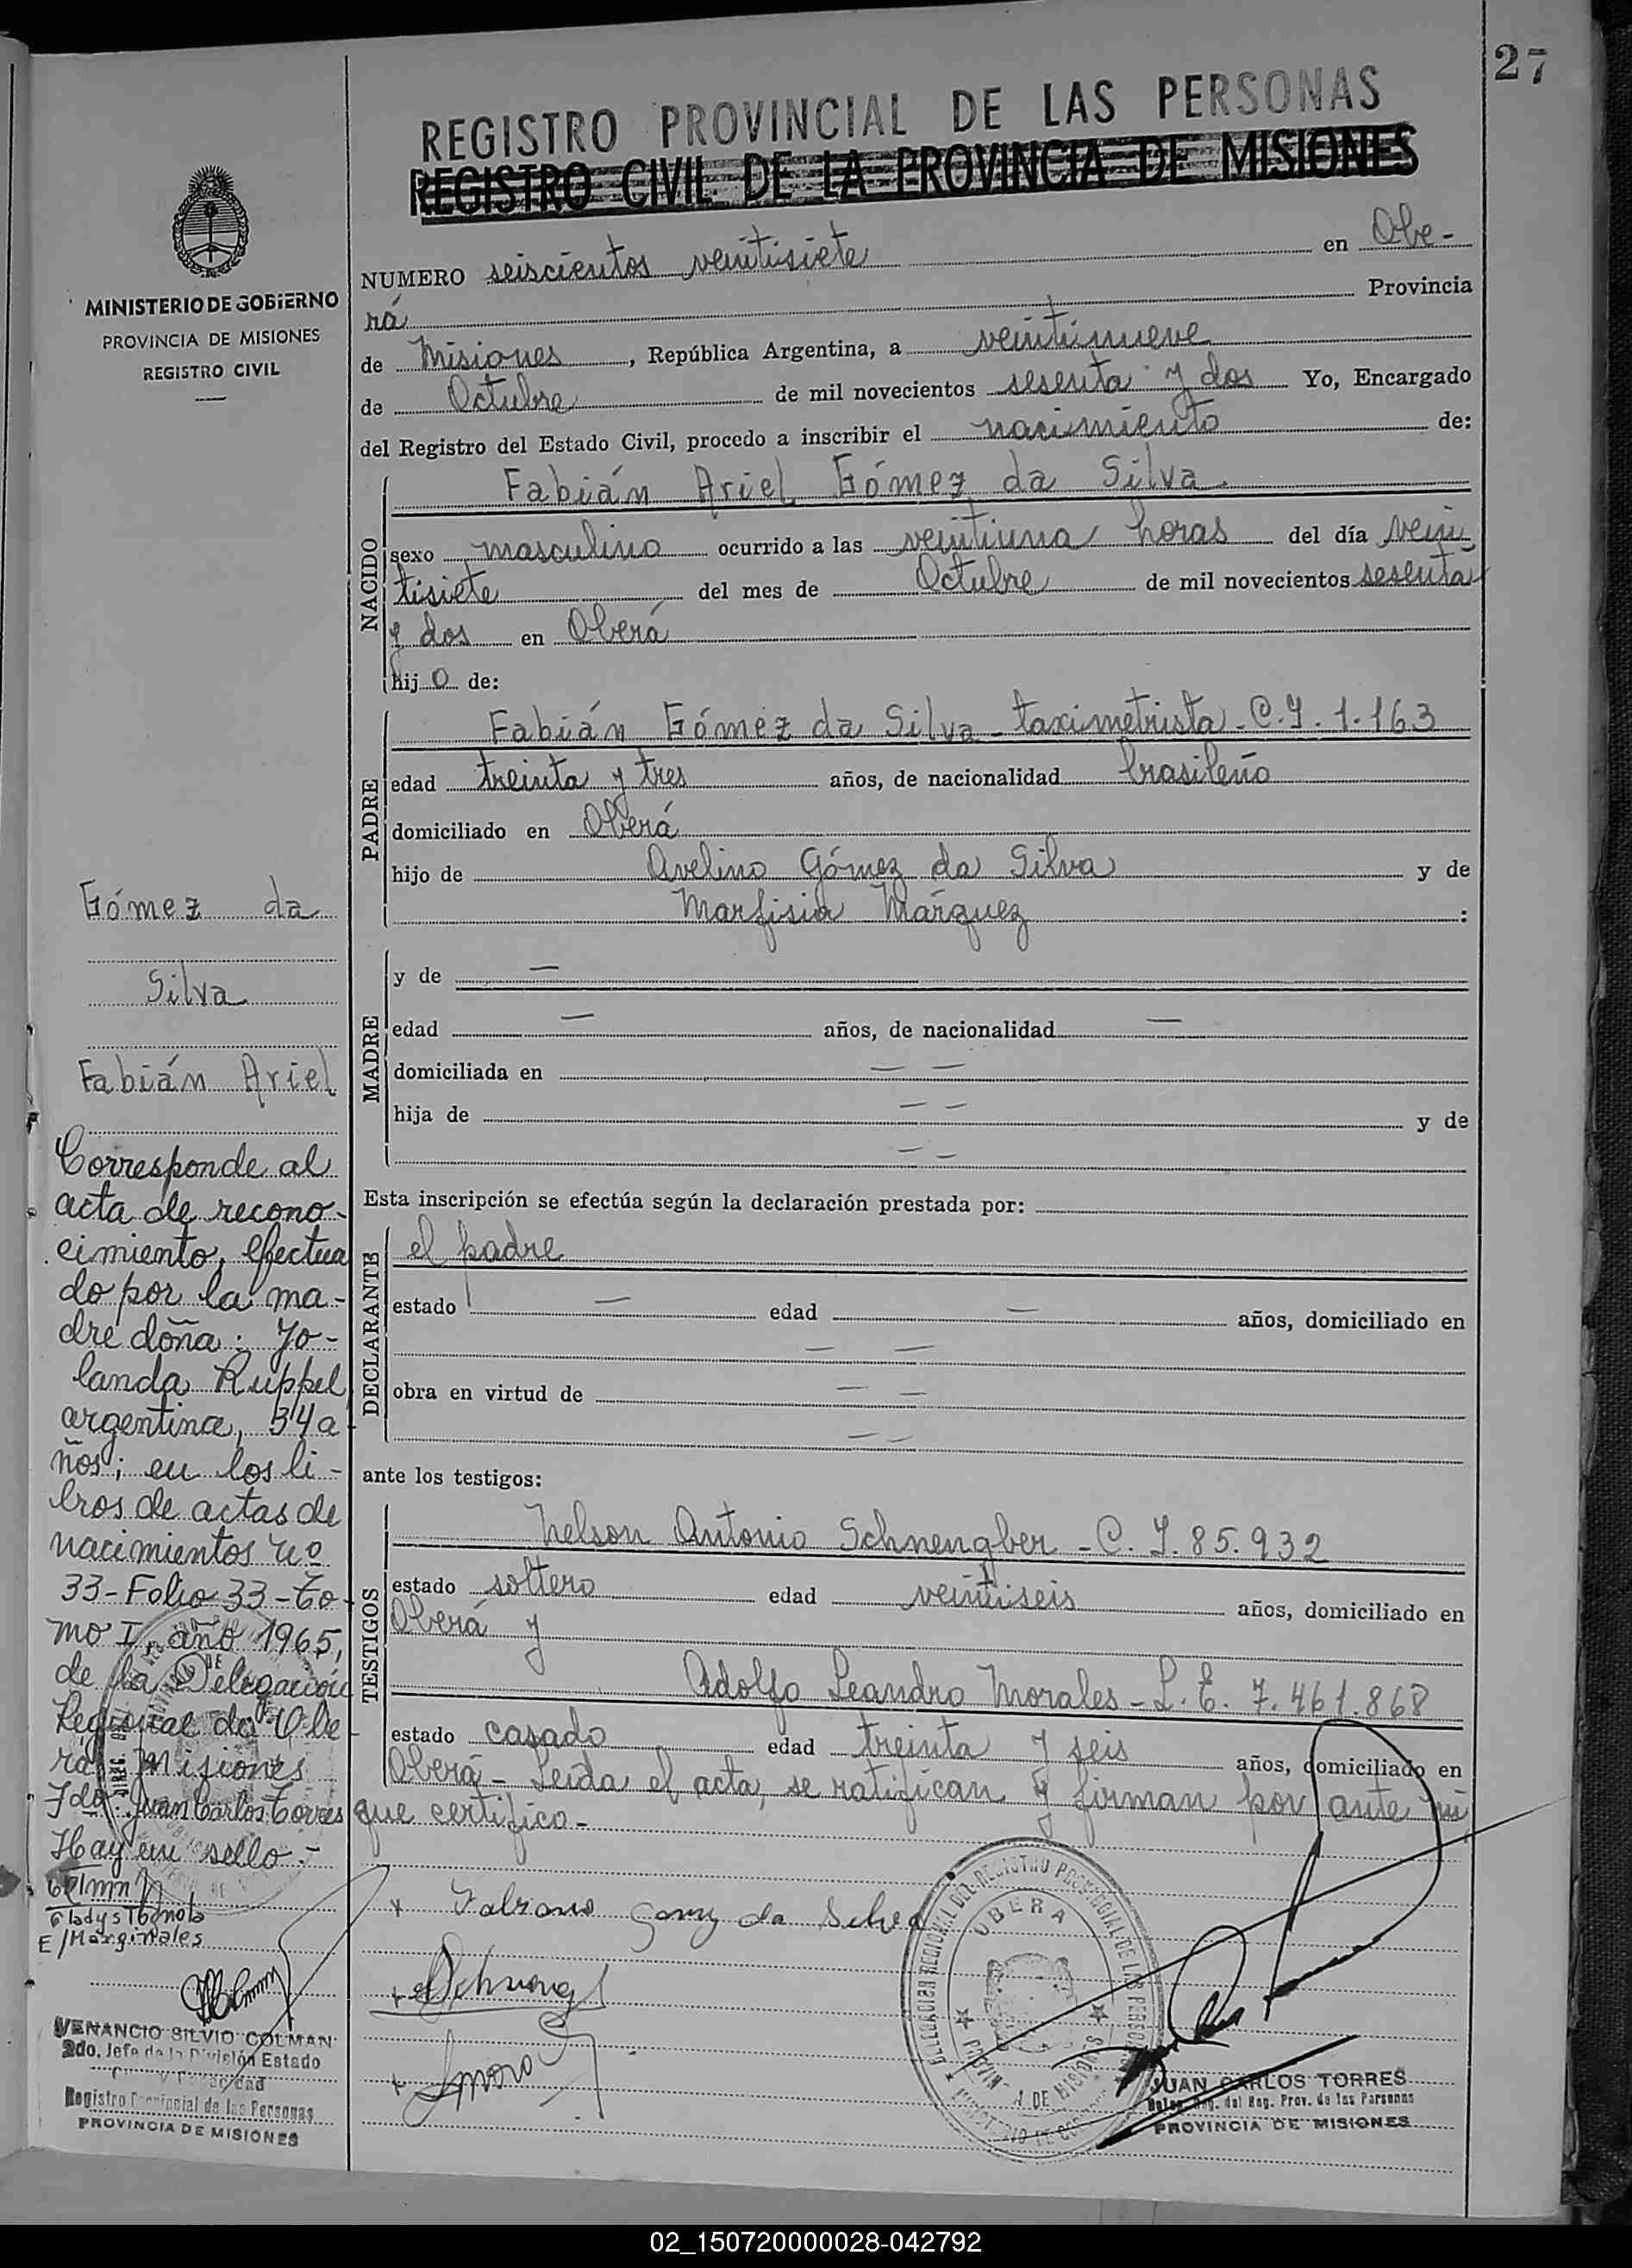 27
REGISTRO PROVINCIAL DE LAS PERSONAS
REGISTRO CIVIL DE LA PROVINCIA DE MISIONES
MINISTERIO DE GOBIERNO
PROVINCIA DE MISIONES
REGISTRO CIVIL
NUMERO seiscientos veintisiete en Obe-
rá Provincia
de Misiones, República Argentina, a veintinueve
de Octubre de mil novecientos sesenta y dos Yo, Encargado
del Registro del Estado Civil, procedo a inscribir el nacimiento de:
NACIDO
Fabián Ariel Gómez da Silva
sexo masculino ocurrido a las veintiuna horas del día vein
tisiete del mes de Octubre de mil novecientos sesenta
y dos en Oberá
hijo de:
PADRE
Fabián Gómez da Silva - taximetrista - C.I. 1.163
edad treinta y tres años, de nacionalidad brasileño
domiciliado en Oberá
hijo de Avelino Gómez da Silva y de
Marfisia Márquez :
MADRE
y de —
edad — años, de nacionalidad —
domiciliada en — —
hija de — — y de
— —
Esta inscripción se efectúa según la declaración prestada por:
DECLARANTE
el padre
estado — edad — años, domiciliado en
— —
obra en virtud de — —
— —
ante los testigos:
TESTIGOS
Nelson Antonio Schnengber - C. I. 85.932
estado soltero edad veintiseis años, domiciliado en
Oberá y
Adolfo Leandro Morales - L. E. 7.461.868
estado casado edad treinta y seis años, domiciliado en
Oberá - Leida el acta, se ratifican y firman por ante mi
que certifico -
Gómez da
Silva
Fabián Ariel
Corresponde al
acta de recono-
cimiento, efectua
do por la ma-
dre doña: Yo-
landa Ruppel
argentina, 34 a-
ños; en los li-
bros de actas de
nacimientos nº
33 - Folio 33 - To-
mo I, año 1965,
de la Delegación
Regional de Obe-
rá Misiones
Fdo: Juan Carlos Torres
Hay un sello.-
Gladys
E/Marginales
VENANCIO SILVIO COLMAN
2do. Jefe de la División Estado
Registro Provincial de las Personas
PROVINCIA DE MISIONES
da Silva
OBERA
JUAN CARLOS TORRES
Reg. del Reg. Prov. de las Personas
PROVINCIA DE MISIONES
02_150720000028-042792